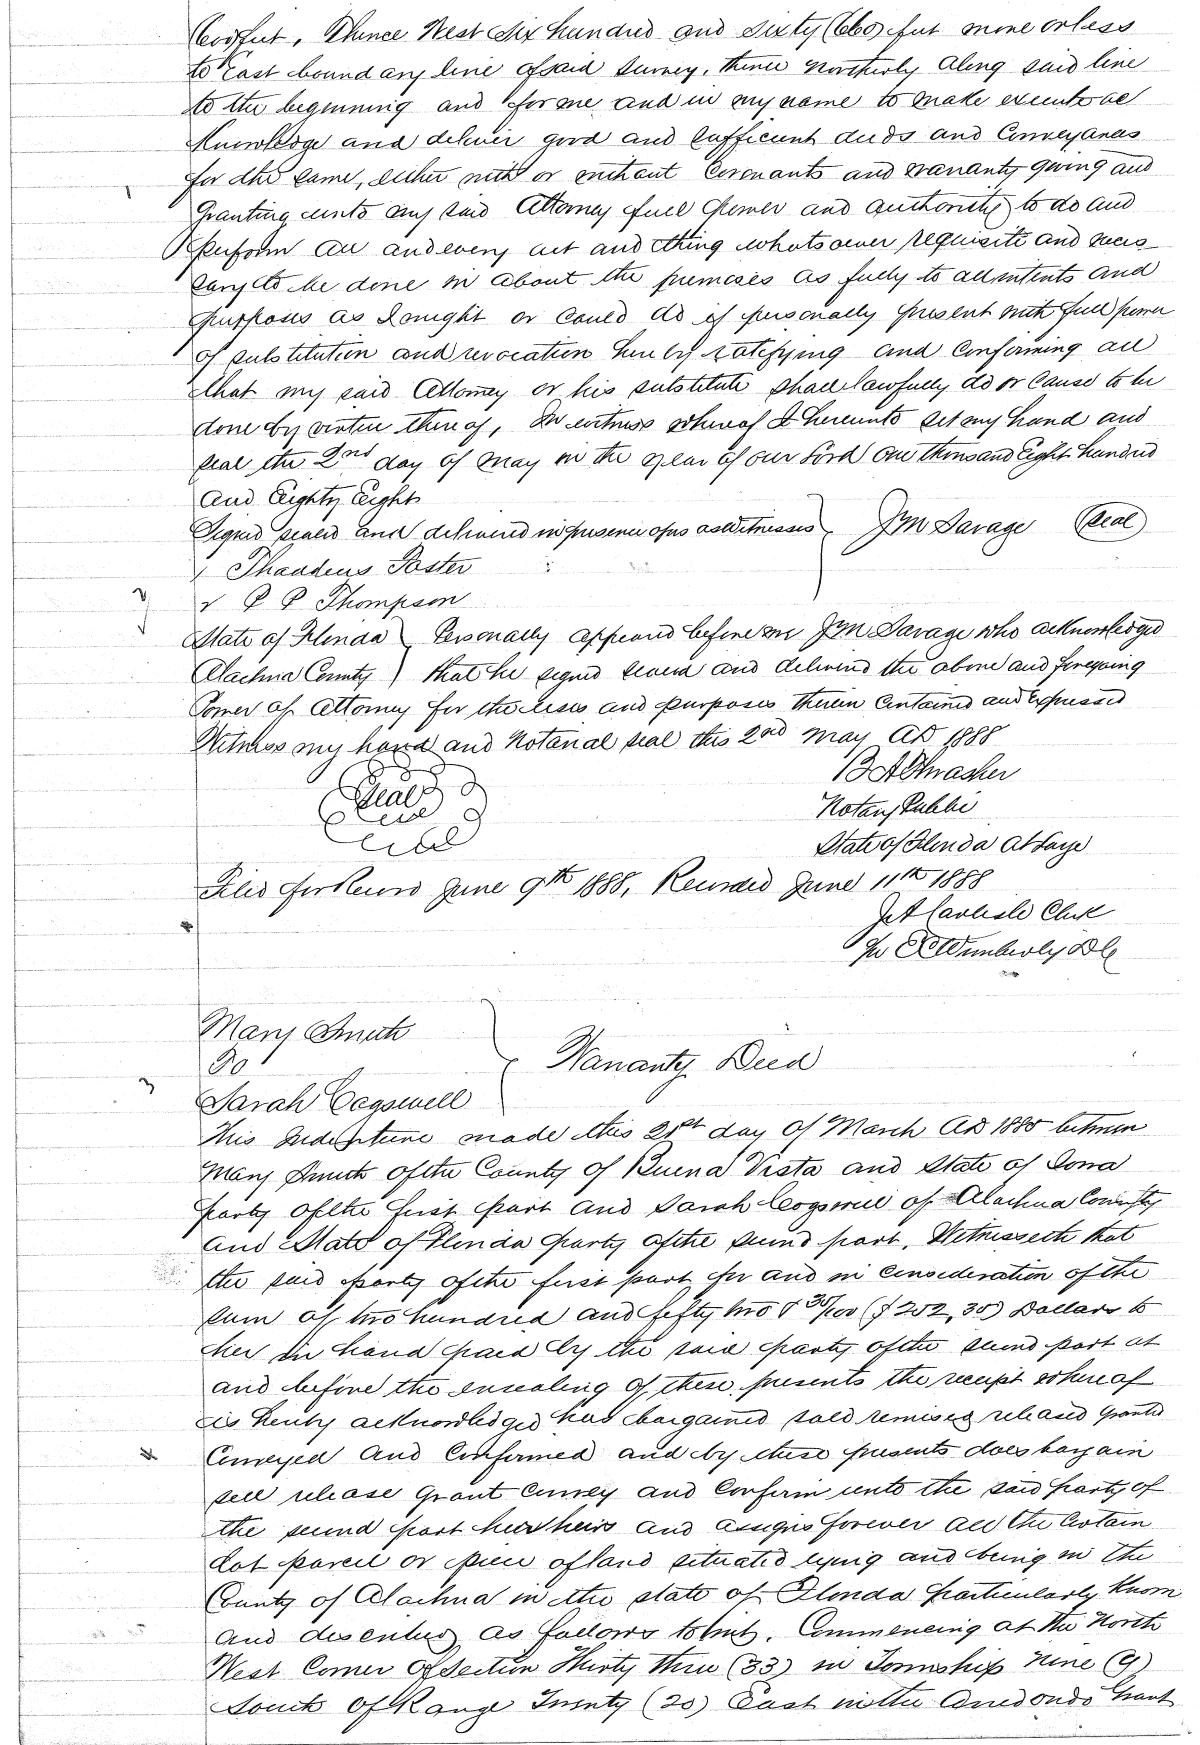 feet, Thence West Six hundred and Sixty (660) feet more or less
to East boundary line of said Survey, thence Northerly along said line
to the beginning and for me and in my name to make execute ac
knowledge and deliver good and Sufficient deeds and Conveyances
for the same, either with or without Covenants and warranty giving and
Granting unto my said Attorney full power and authority to do and
perform all and every act and thing whatsoever requisite and neces
sary to be done in about the premises as fully to all intents and
purposes as I might or could do if personally present with full power
of substitution and revocation hereby ratifying and Confirming all
that my said Attorney or his substitute shall lawfully do or Cause to be
done by virtue thereof, In witness whereof I hereunto set my hand and
seal the 2nd day of May in the year of our Lord One thousand Eight hundred
and Eighty Eight
Signed sealed and delivered in presence of us as witnesses J M Savage (Seal)
Thaddeus Foster
P P Thompson
State of Florida Personally appeared before me J M Savage who acknowledged
Alachua County that he signed sealed and delivered the above and foregoing
Power of Attorney for the uses and purposes therein Contained and Expressed
Witness my hand and Notarial seal this 2nd May AD 1888
Seal B A Thrasher
Notary Public
State of Florida At Large
Filed for Record June 9th 1888, Recorded June 11th 1888
J A Carlisle Clerk
Wimberly DC
Mary Smith
To Warranty Deed
Sarah Cogswell
This Indenture made this 21st day of March AD 1885 between
Mary Smith of the County of Buena Vista and State of Iowa
party of the first part and Sarah Cogswell of Alachua County
and State of Florida party of the second part, Witnesseth that
the said party of the first part for and in Consideration of the
sum of two hundred and fifty two & 30/100 ($ 252,30) Dollars to
her in hand paid by the said party of the second part at
and before the ensealing of these presents the receipt whereof
is hereby acknowledged has bargained sold remised released granted
Conveyed and Confirmed and by these presents does bargain
sell release Grant Convey and Confirm unto the said party of
the second part her heirs and assigns forever all the Certain
Lot parcel or piece of land situated lying and being in the
County of Alachua in the state of Florida particularly Known
and described as follows to wit, Commencing at the North
West Corner of Section Thirty three (33) in Township Nine (9)
South of Range Twenty (20) East in the Arredondo Grant